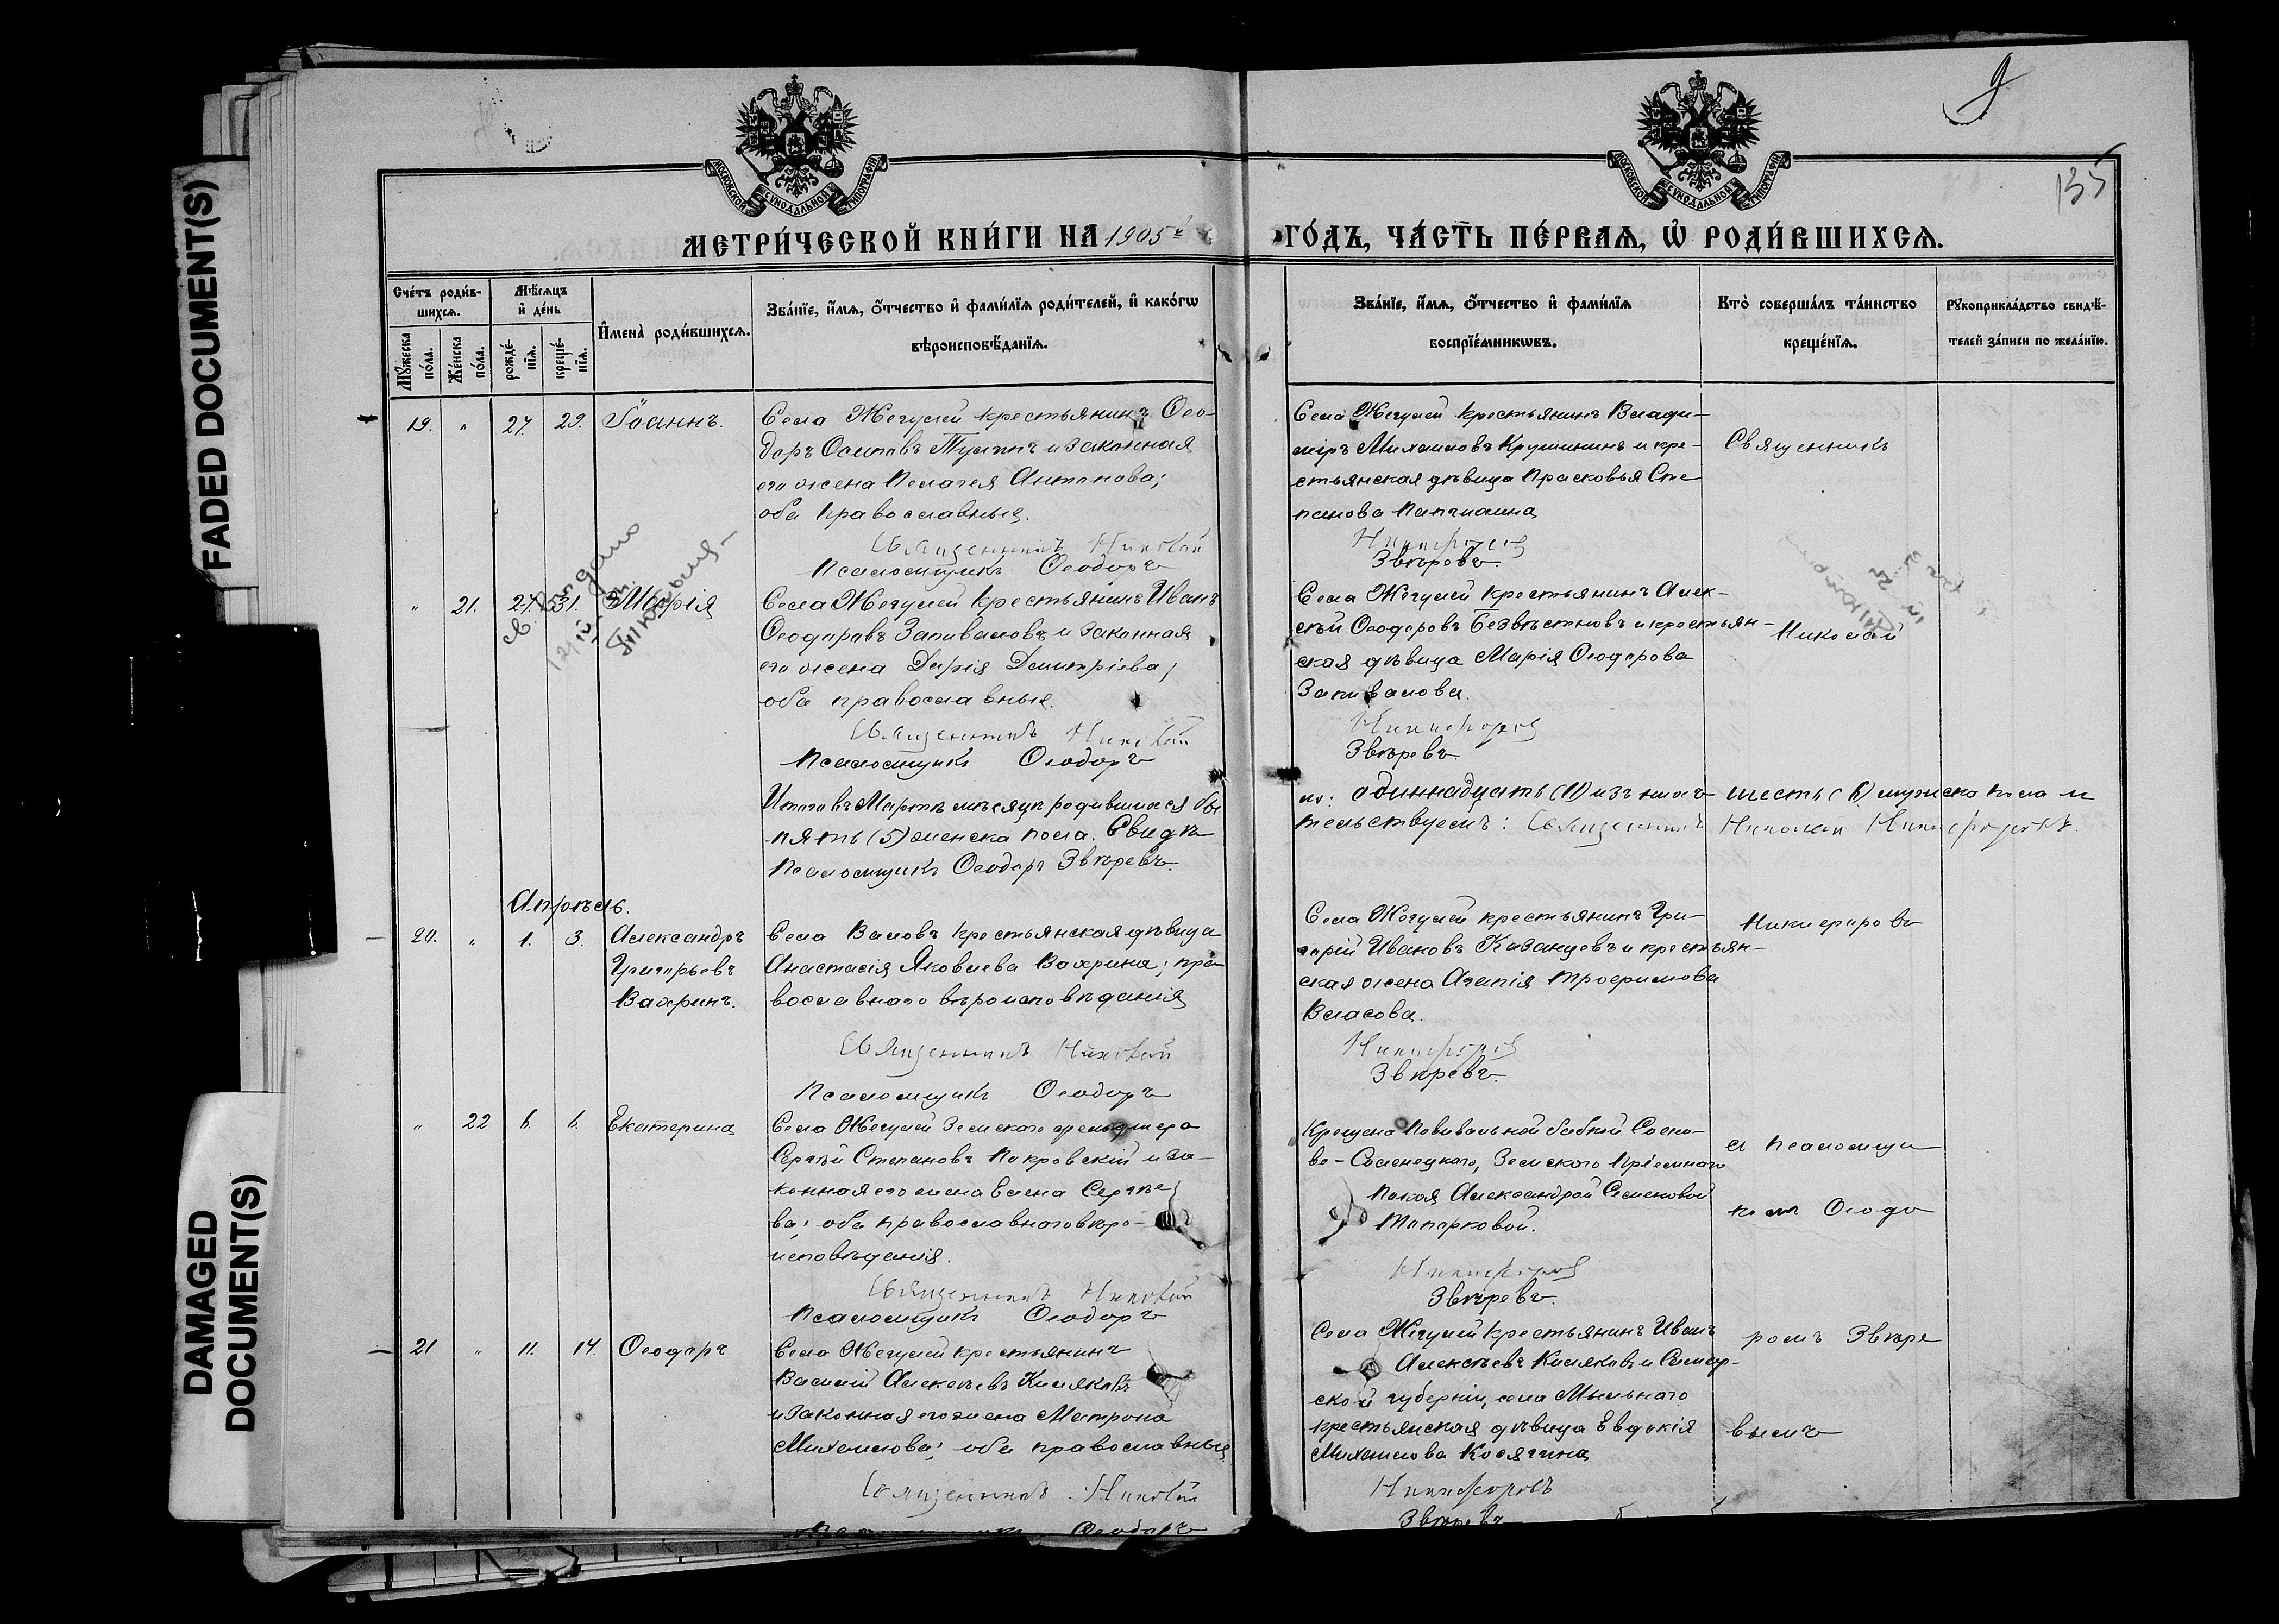 FADED DOCUMENT(S)
DAMAGED DOCUMENT(S)
9
135
МОСКОВСКОЙ СѴНОДАЛЬНОЙ ТИПОГРАФІИ
МОСКОВСКОЙ СѴНОДАЛЬНОЙ ТИПОГРАФІИ
МЕТРИ́ЧЕСКОЙ КНИ́ГИ НА 1905й
ГО́ДЪ, ЧА́СТЬ ПЕ́РВАѦ, Ѡ҆ РОДИ́ВШИХСѦ.
Сче́тъ роди́в-
шихсѧ.
Мꙋ́жеска по́ла.
Же́нска по́ла.
Мѣ́сѧцъ
и҆ де́нь
рожде́-
нїѧ.
креще́-
нїѧ.
И҆мена̀ роди́вшихсѧ.
Зва́нїе, и҆́мѧ, ѻ҆́тчество и҆ фами́лїѧ роди́телей, и҆ како́гѡ
вѣроисповѣ́данїѧ.
Зва́нїе, и҆́мѧ, ѻ҆́тчество и҆ фами́лїѧ
воспрїе́мникѡвъ.
Кто̀ соверша́лъ та́инство
креще́нїѧ.
Рꙋкоприкла́дство свидѣ́-
телей за́писи по жела́нїю.
19. " 27. 29. Іоаннъ.
Села Жегулей крестьянинъ Ѳео-
доръ Осиповъ и законная
его жена Пелагея Антонова;
оба православные.
Священникъ Николай
Псаломщикъ Ѳеодоръ
Села Жегулей крестьянинъ Влади-
міръ Михаиловъ Крушининъ и кре-
стьянская дѣвица Прасковья Сте
панова
Никифоровъ
Звѣревъ.
Священникъ
" 21. 27. 31. Марія
св. выдано
Села Жегулей крестьянинъ Иванъ
Ѳеодоровъ Запиваловъ и законная
его жена Дарія Димитріева;
оба православные.
Священникъ Николай
Псаломщикъ Ѳеодоръ
Села Жегулей крестьянинъ Алек-
сѣй Ѳеодоровъ Безвѣстновъ и крестьян-
ская дѣвица Марія Ѳеодорова
Запивалова.
Никифоровъ
Звѣревъ.
Николай
Итого въ Мартѣ мѣсяцѣ родившихся бы
ло: одиннадцать (11) изъ нихъ шесть (6) мужеска пола и
пять (5) женска пола. Свидѣ
тельствуемъ: Священникъ Николай Никифоровъ.
Псаломщикъ Ѳеодоръ Звѣревъ.
Апрѣль.
20. " 1. 3. Александръ
Григорьевъ
Вахринъ.
Села Валовъ крестьянская дѣвица
Анастасія Яковлева Вахрина; пра
вославнаго вѣроисповѣданія
Священникъ Николай
Псаломщикъ Ѳеодоръ
Села Жегулей крестьянинъ Гри-
горій Ивановъ Казанцевъ и крестьян-
ская жена Агапія Трофимова
Власова.
Никифоровъ
Звѣревъ.
Никифоровъ
" 22 6. 6. Екатерина
Села Жегулей Земскаго фельдшера
Сергѣй Степановъ Покровскій и за-
конная его жена Елена Сергѣе
ва; оба православнаго вѣро-
исповѣданія.
Священникъ Николай
Псаломщикъ Ѳеодоръ
Крещена Повивальной бабкой Сосно-
во-Солонецкаго, Земскаго Пріемнаго
Покоя Александрой Семеновой
Топорковой.
Никифоровъ
Звѣревъ.
съ псаломщи
комъ Ѳеодо
21 " 11. 14. Ѳеодоръ
Села Жегулей крестьянинъ
Василій Алексѣевъ Кисляковъ
и законная его жена Матрона
Михаилова; оба православные
Священникъ Николай
Ѳеодоръ
Села Жегулей крестьянинъ Иванъ
Алексѣевъ Кисляковъ и Самар-
ской губерніи, села Мыльнаго
крестьянская дѣвица Евдокія
Михаилова Косягина
Никифоровъ
Звѣревъ
ромъ Звѣре
вымъ